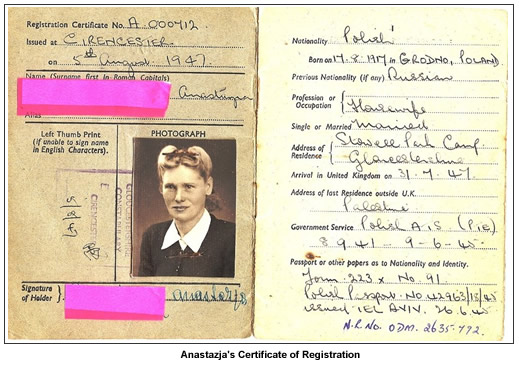 Registration Certificate No. A 000712.
Issued at CIRENCESTER
on 5th August 1947.
Name (Surname first in Roman Capitals)
Alias
Left Thumb Print
(if unable to sign name
in English Characters).
PHOTOGRAPH
GLOUCESTERSHIRE
CONSTABULARY
CIRENCESTER
Signature
of Holder
Nationality Polish
Born on 17.8.1917 in GRODNO, POLAND
Previous Nationality (if any) Russian
Profession or
Occupation
Housewife
Single or Married Married
Address of
Residence
Stowell Park Camp
Gloucestershire
Arrival in United Kingdom on 31.7.47.
Address of last Residence outside U.K.
Palestine
Government Service Polish A.T.S. (P.i.E)
8 9 41 - 9-6-45
Passport or other papers as to Nationality and Identity.
Form 223 x No. 91.
Polish Passport No 42963/15/45
issued TEL AVIV. 26.6.45
N.R. No. ODM. 2635-772.
Anastazja's Certificate of Registration